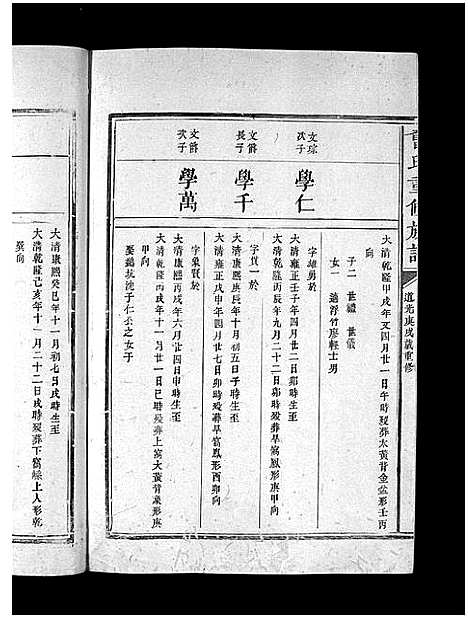 氏重修族譜
道光庚戌歲重修
大清乾隆甲戌年又四月廿一日午時歿葬太黃背金盆形壬丙
向
子二 世禮 世儀
女一 適浮竹廖輕士男
文琮
次子
學仁
字雄勇於
大清雍正壬子年四月廿二日卯時生至
大清乾隆丙辰年九月二十二日卯時歿葬旱窩鳳形庚甲向
文爵
長子
學千
字貫一於
大清康熙庚辰年十月初五日子時生至
大清雍正甲寅年四月廿七日卯時歿葬旱窩鳳形酉卯向
文爵
次子
學萬
字象賢於
大清康熙丙戌年六月廿四日申時生至
大清乾隆丙戌年十一月廿一日巳時歿葬上窩大黃背象形庚
甲向
娶鵝坑沈子仁公之女子
大清康熙癸巳年十一月初七日戌時生至
大清乾隆己亥年十一月二十二日戌時歿葬下窩綵上人形乾
巽向